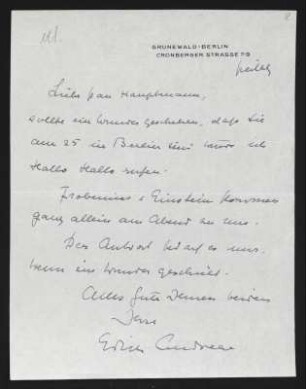 GRUNEWALD-BERLIN
CRONBERGER STRASSE 7/9
Liebe Frau Hauptmann,
sollte ein Wunder geschehen, dass Sie
am 25 in Berlin sind
Hallo Hallo rufen.
Frobenius & Einstein kommen
ganz allein am Abend zu uns.
Der Antwort bedarf es nur,
wenn ein Wunder geschieht.
Alles Gute Ihnen beiden
Ihre
Edith Andreae